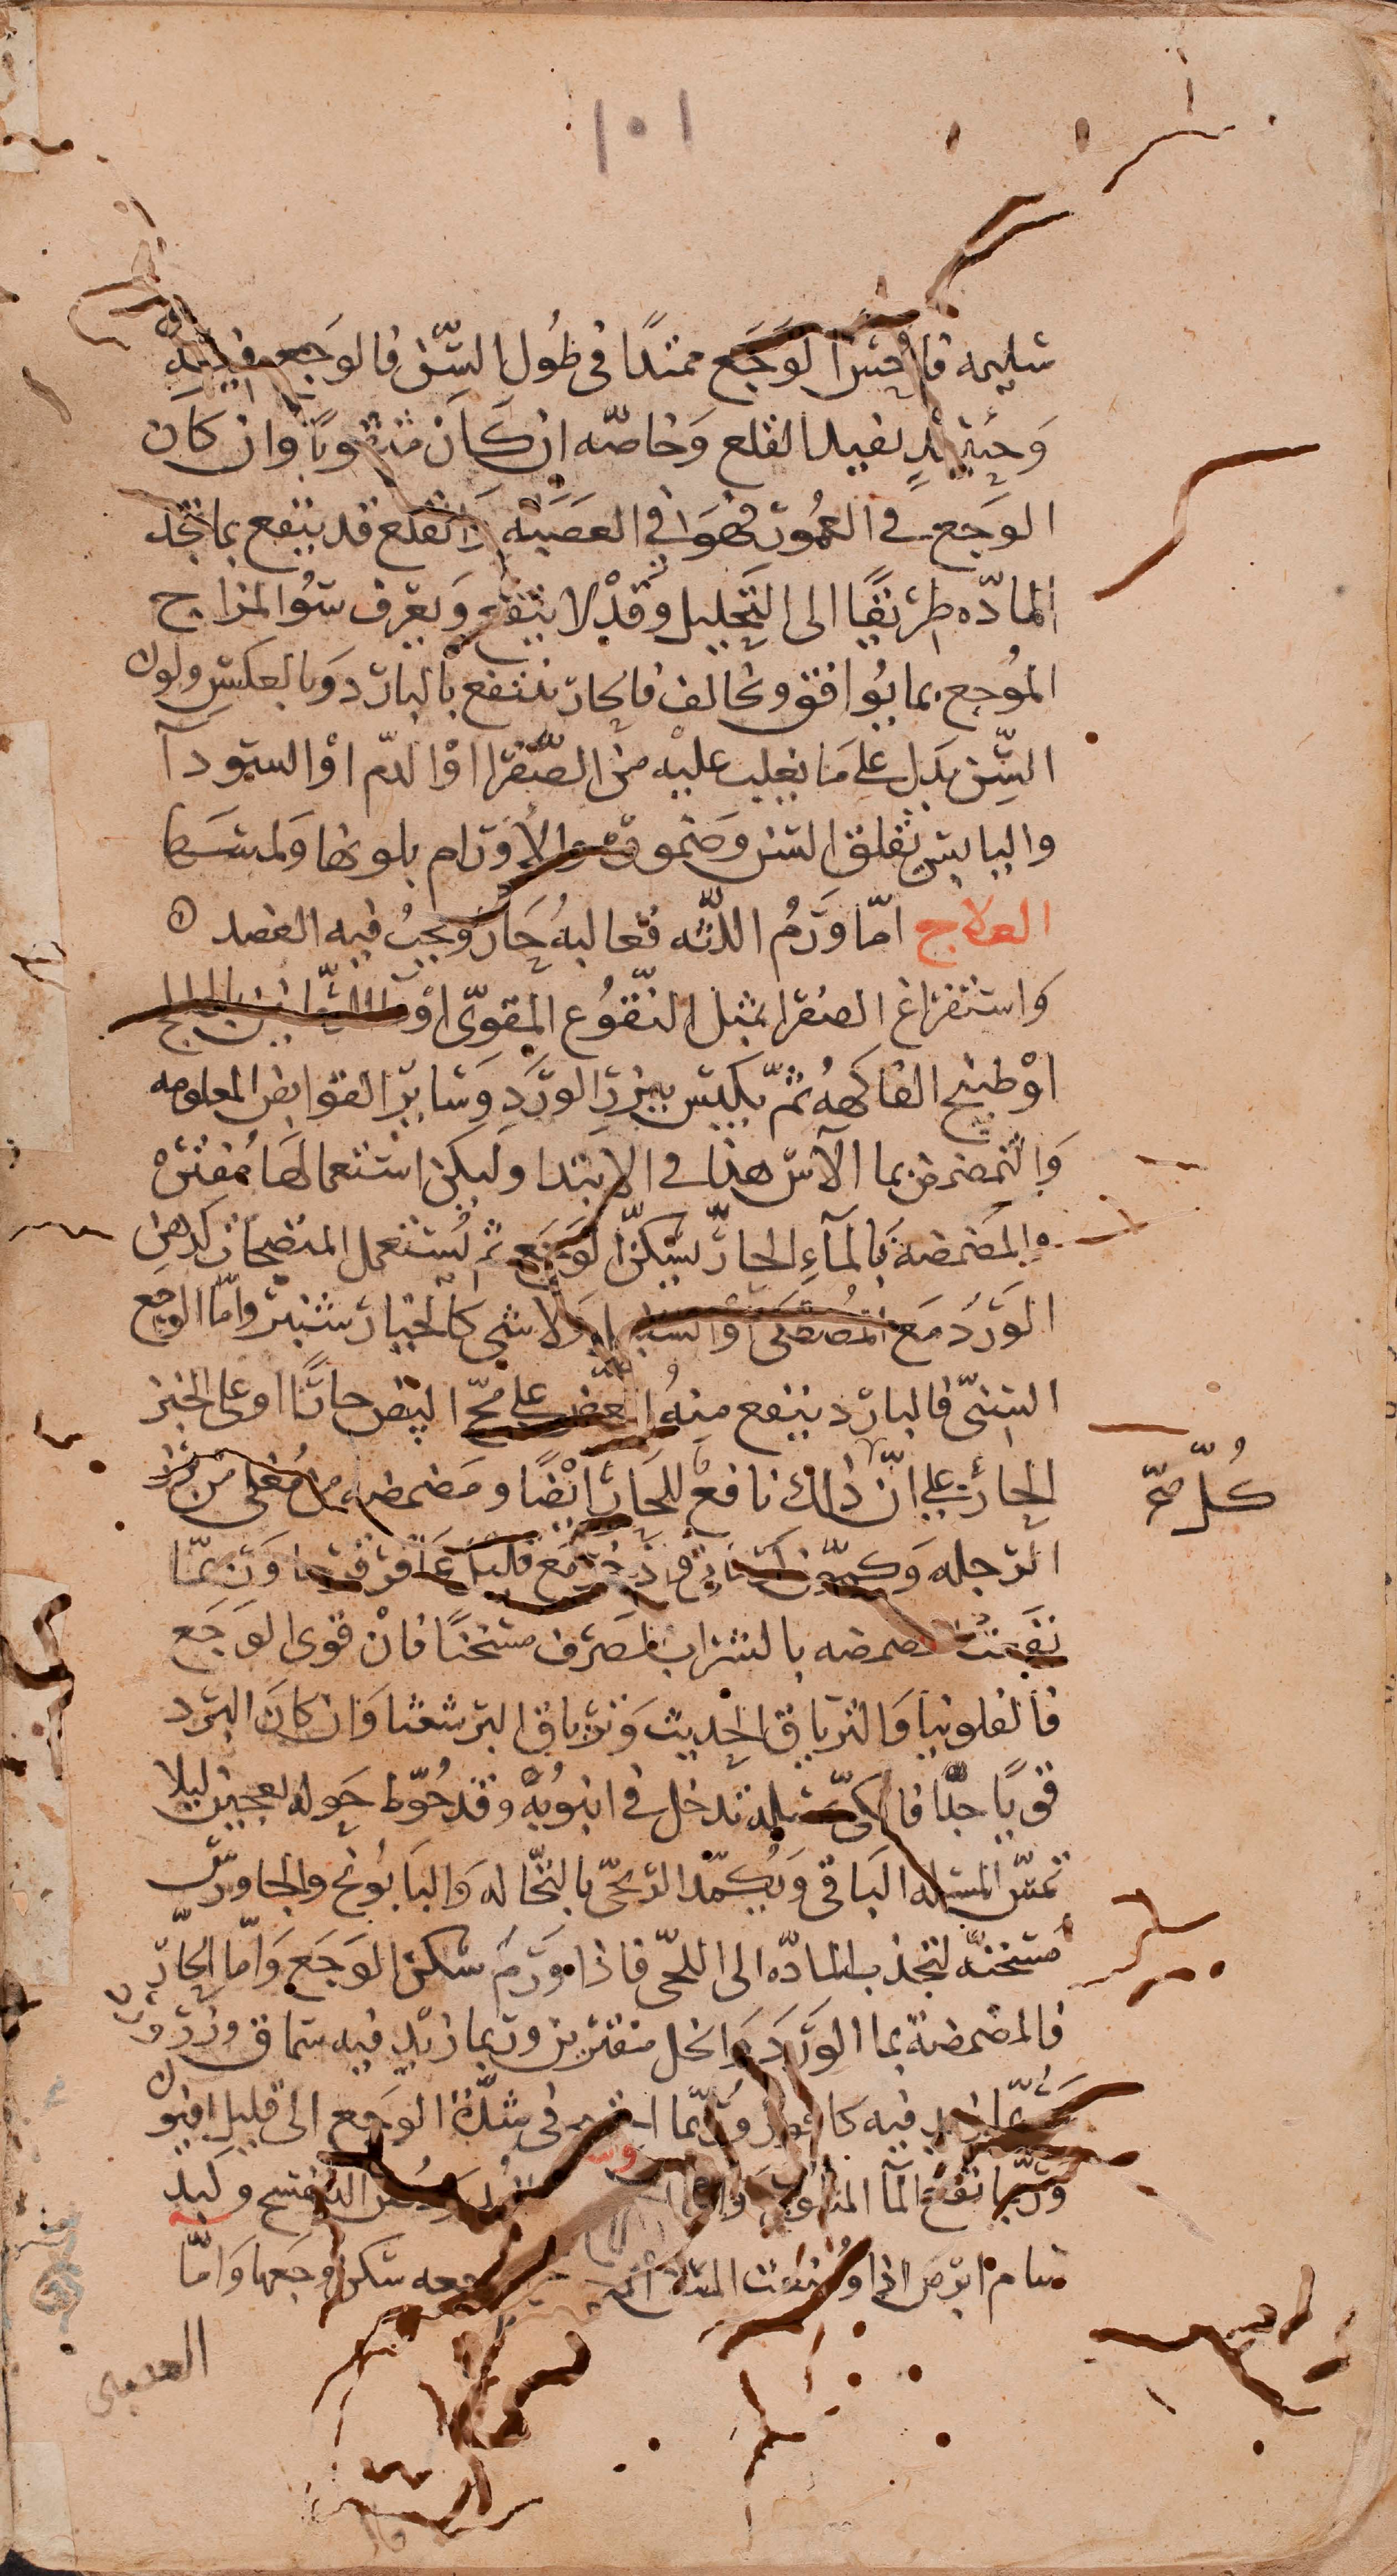 ١٠١
سليمه فان احس الوجع ممتدا في طول السّن فالوجع فيه
وَحينئذٍ يفيد القلع وَخاصّه ان كَان مثقوبًا وان كان
الوَجع في العمُود فهوَ في العصَبَه وَالقلع قد ينفع بما تجد
المادّه طريقًا الى التحليل وقدْ لا ينتفع وَيعرف سُو المزاج
المُوجع بما يُوافق ويخالف فالحارّ ينتفع بالبارد وَبالعكس ولون
السّن يدل على مَا يغلب عليْه من الصّفرا اوْ الدّم اوْ السودآ
واليابس بقلق السن وَضمورها والأورَام بلونها وَلمسها
العلاج امّا وَرمُ اللثه فغالبهُ حَار وَيجبُ فيه الفصد
وَاستفراغ الصفرا بمثل النّقوُع المقوّى اوْ
اوْ طبيخ الفاكههُ ثمّ يكبس ببزر الورَدِ وَسَاير القوابض المعلومه
وَالتمضمض بما الآس هذا في الابتدا وليكن استعمالهَا مُفترْ
والمَضمضهَ بالمآءِ الحارّ يسَكنّ الوَجَع ثم يُستعمل المنضجات كدهن
الوَردَ مَع المُصْطكى وَالسنبل وَلا شي كالخيار شنبر وامّا الوجع
السنىّ فالبارد ينفع منهُ العضّ على مُحّ البيض حارًّا او على الخبز
الحارّ على انّ ذلك نافعٌ للحَارّ ايْضًا ومَضمضه من مُغلى مر
الرجله وَكمّون مَع قليل عَاقرقرحا وَربمّا
نفعت مضمضه بالشراب الصّرف مسخنًا فانْ قوى الوَجَع
فالفلونيا وَالترياق الحديث وَترياق البرشعثا وَان كانَ البرد
قويًا جدًّا فالكىّ بمسله تدخل في انبُوبةٌ وقد حُوّط حَوله بعجين ليلا
تمسّ المسله البَاقي وَيُكمّد الرّيحىّ بالنخّاله وَالبَابُونج والجاورس
مُسَخنةً لتجذب المادّه الى اللحّى فاذا وَرَمَ سكن الوَجَع وَامّا الحارّ
فالمضمضة بما الوَرَد وَالخل مفترين وربما زيد فيه سماق وَوَرد
وَربمّا زيد فيه كافور وَربّما احتيج في شدّة الوَجع الى قليل افيون
وَربّما نفع المآ المثلوج وَامّا دُهن البنفسج وكبد
سام ابرص اذا وُضعت المتاكله سكن وَجعها وَامّا
العصبى
كُلّ صحّ